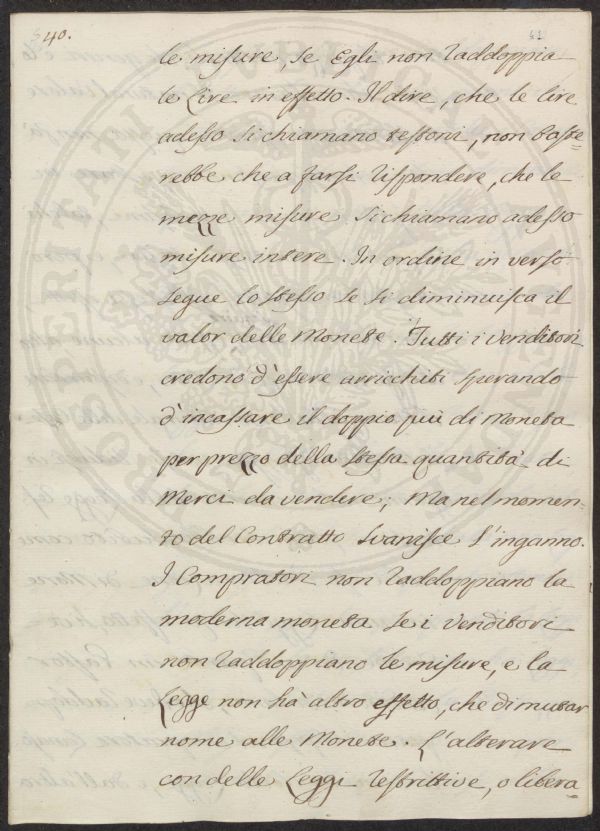 540.
41
le misure, se Egli non raddoppia
le Lire in effetto. Il dire, che le lire
adesso si chiamano testoni, non baste=
rebbe che a farsi rispondere, che le
mezze misure si chiamano adesso
misure intere. In ordine in verso
segue lo stesso se si diminuisca il
valor delle Monete. Tutti i Venditori
credono d'essere arricchiti sperando
d'incassare il doppio più di Moneta
per prezzo della stessa quantità di
Merci da vendere; Ma nel momen=
to del Contratto svanisce l'inganno.
I Compratori non raddoppiano la
moderna moneta se i Venditori
non raddoppiano le misure, e la
Legge non hà altro effetto, che di mutar
nome alle Monete. L'alterare
con delle Leggi restrittive, o libera=
PROSPERITATI PUBLICAE